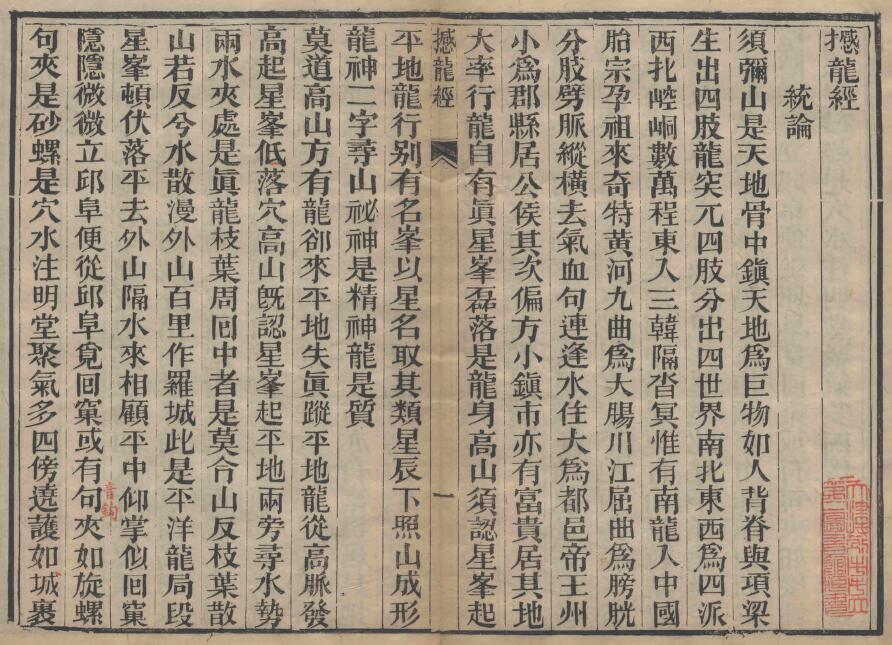 撼龍經
統論
須彌山是天地骨中鎭天地爲巨物如人背脊與項梁
生出四肢龍突兀四肢分出四世界南北東西爲四派
西北崆峒數萬程東入三韓隔杳冥惟有南龍入中國
胎宗孕祖來奇特黃河九曲爲大腸川江屈曲爲膀胱
分肢劈脈縱橫去氣血句連逢水住大爲都邑帝王州
小爲郡縣居公侯其次偏方小鎭市亦有富貴居其地
大率行龍自有眞星峯磊落是龍身高山須認星峯起
撼龍經
一
平地龍行别有名峯以星名取其類星辰下照山成形
龍神二字尋山祕神是精神龍是質
莫道高山方有龍卻來平地失眞蹤平地龍從高脈發
高起星峯低落穴高山旣認星峯起平地兩旁尋水勢
兩水夾處是眞龍枝葉周回中者是莫合山反枝葉散
山若反兮水散漫外山百里作羅城此是平洋龍局段
星峯頓伏落平去外山隔水來相顧平中仰掌似回窠
隱隱微微立邱阜便從邱阜覓回窠或有句夾如旋螺
音鉤
句夾是砂螺是穴水注明堂聚氣多四傍遶護如城裹